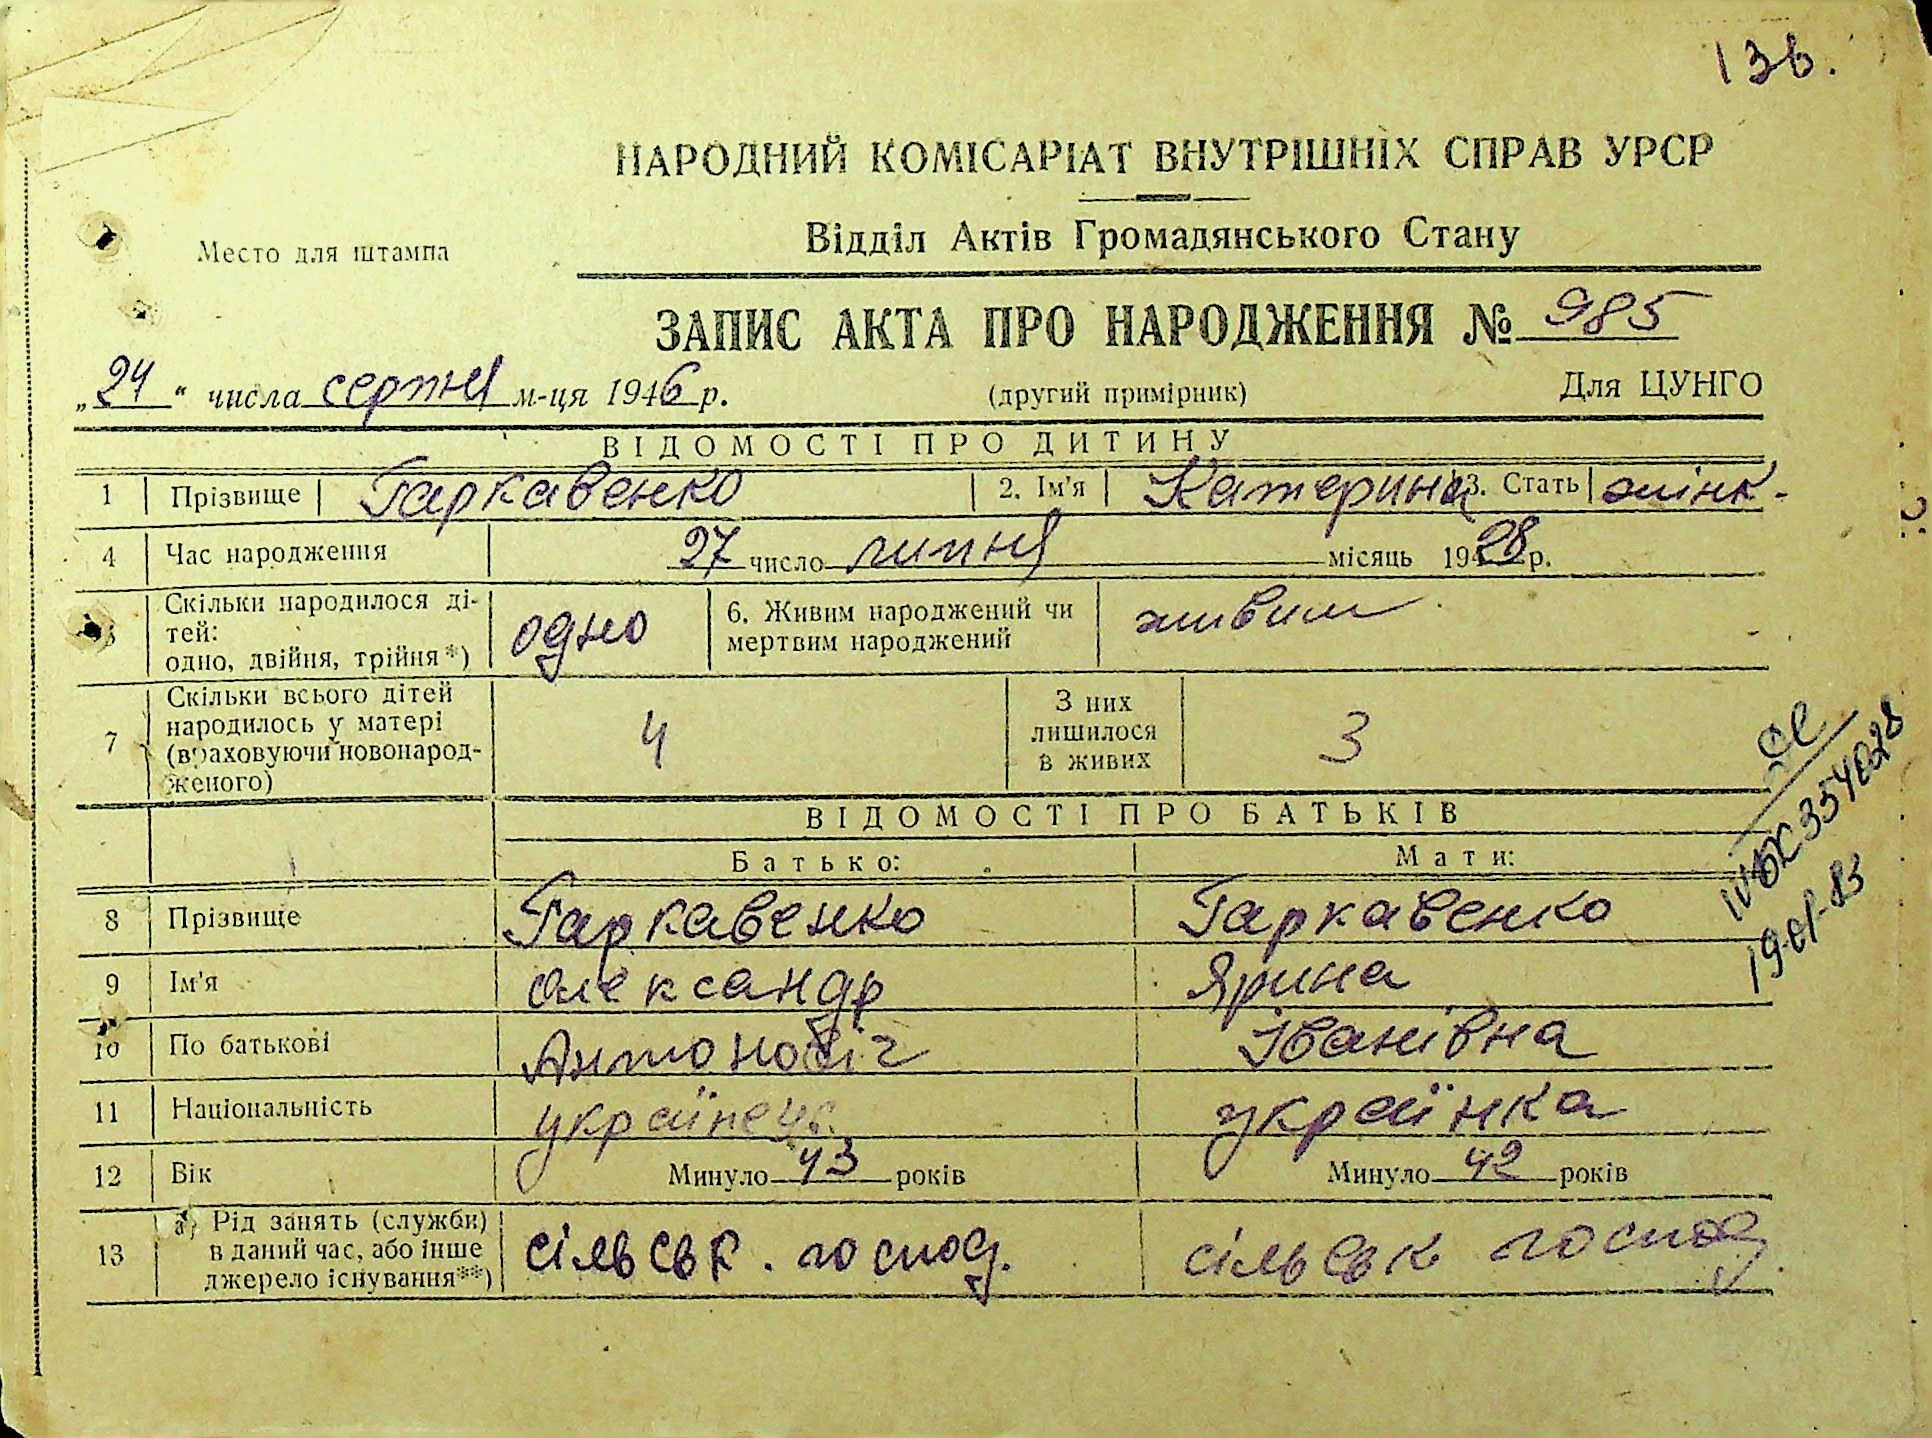 136.
НАРОДНИЙ КОМІСАРІАТ ВНУТРІШНІХ СПРАВ УРСР
Відділ Актів Громадянського Стану
Место для штампа
ЗАПИС АКТА ПРО НАРОДЖЕННЯ № 985
„24“ числа серпня м-ця 1946 р. (другий примірник) Для ЦУНГО
ВІДОМОСТІ ПРО ДИТИНУ
1 Прізвище Гаркавенко 2. Ім'я Катерина 3. Стать жінк.
4 Час народження 27 число липня місяць 1928 р.
5 Скільки народилося ді-
тей:
одно, двійня, трійня*) одно 6. Живим народжений чи
мертвим народжений живим
7 Скільки всього дітей
народилось у матері
(враховуючи новонарод-
женого) 4 З них
лишилося
в живих 3
ВІДОМОСТІ ПРО БАТЬКІВ
Батько: Мати:
8 Прізвище Гаркавенко Гаркавенко
9 Ім'я Олександр Ярина
10 По батькові Антоновіч Іванівна
11 Національність українець. українка
12 Вік Минуло 43 років Минуло 42 років
13 а) Рід занять (служби)
в даний час, або інше
джерело існування**) сільськ. господ. сільськ господ.
354028
19-01-83